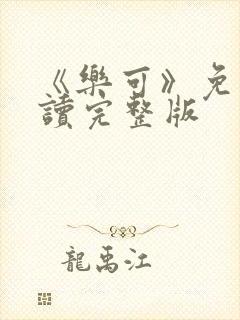 《樂可》免
讀完整版
龍禹江